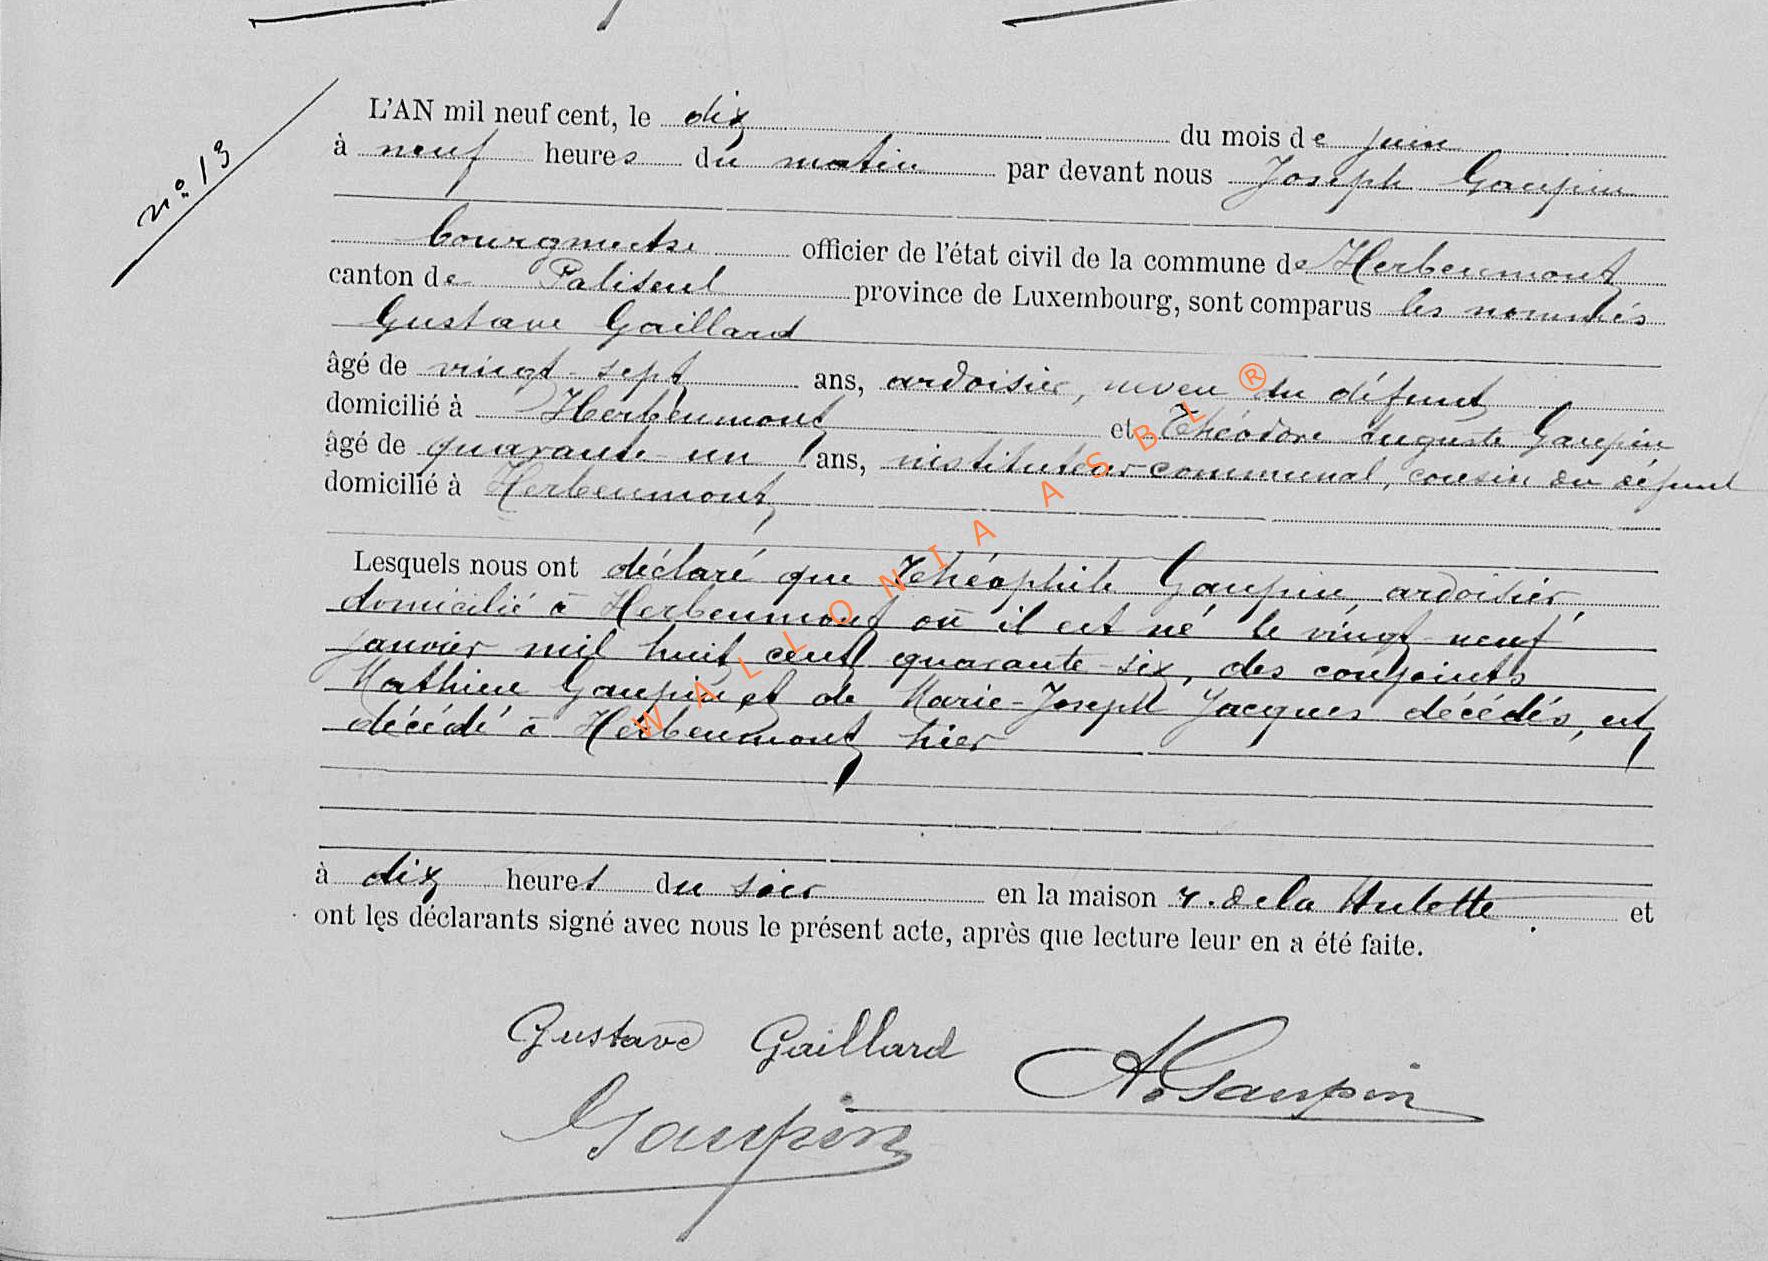 n° 13
L'AN mil neuf cent, le dix du mois de juin
à neuf heures du matin par devant nous Joseph Gaupin
bourgmestre officier de l'état civil de la commune de Herbeumont
canton de Paliseul province de Luxembourg, sont comparus les nommés
Gustave Gaillard
âgé de vingt-sept ans, ardoisier, neveu du défunt
domicilié à Herbeumont et Théodore Auguste Gaupin
âgé de quarante-un ans, instituteur communal, cousin du défunt
domicilié à Herbeumont
Lesquels nous ont déclaré que Théophile Gaupin, ardoisier,
domicilié à Herbeumont où il est né le vingt-neuf
janvier mil huit cent quarante-six, des conjoints
Mathieu Gaupin et de Marie-Joseph Jacques décédés, est
décédé à Herbeumont hier
à dix heures du soir en la maison r. de la Hulette et
ont les déclarants signé avec nous le présent acte, après que lecture leur en a été faite.
Gustave Gaillard A. Gaupin
Gaupin
WALLONIA ASBL ®